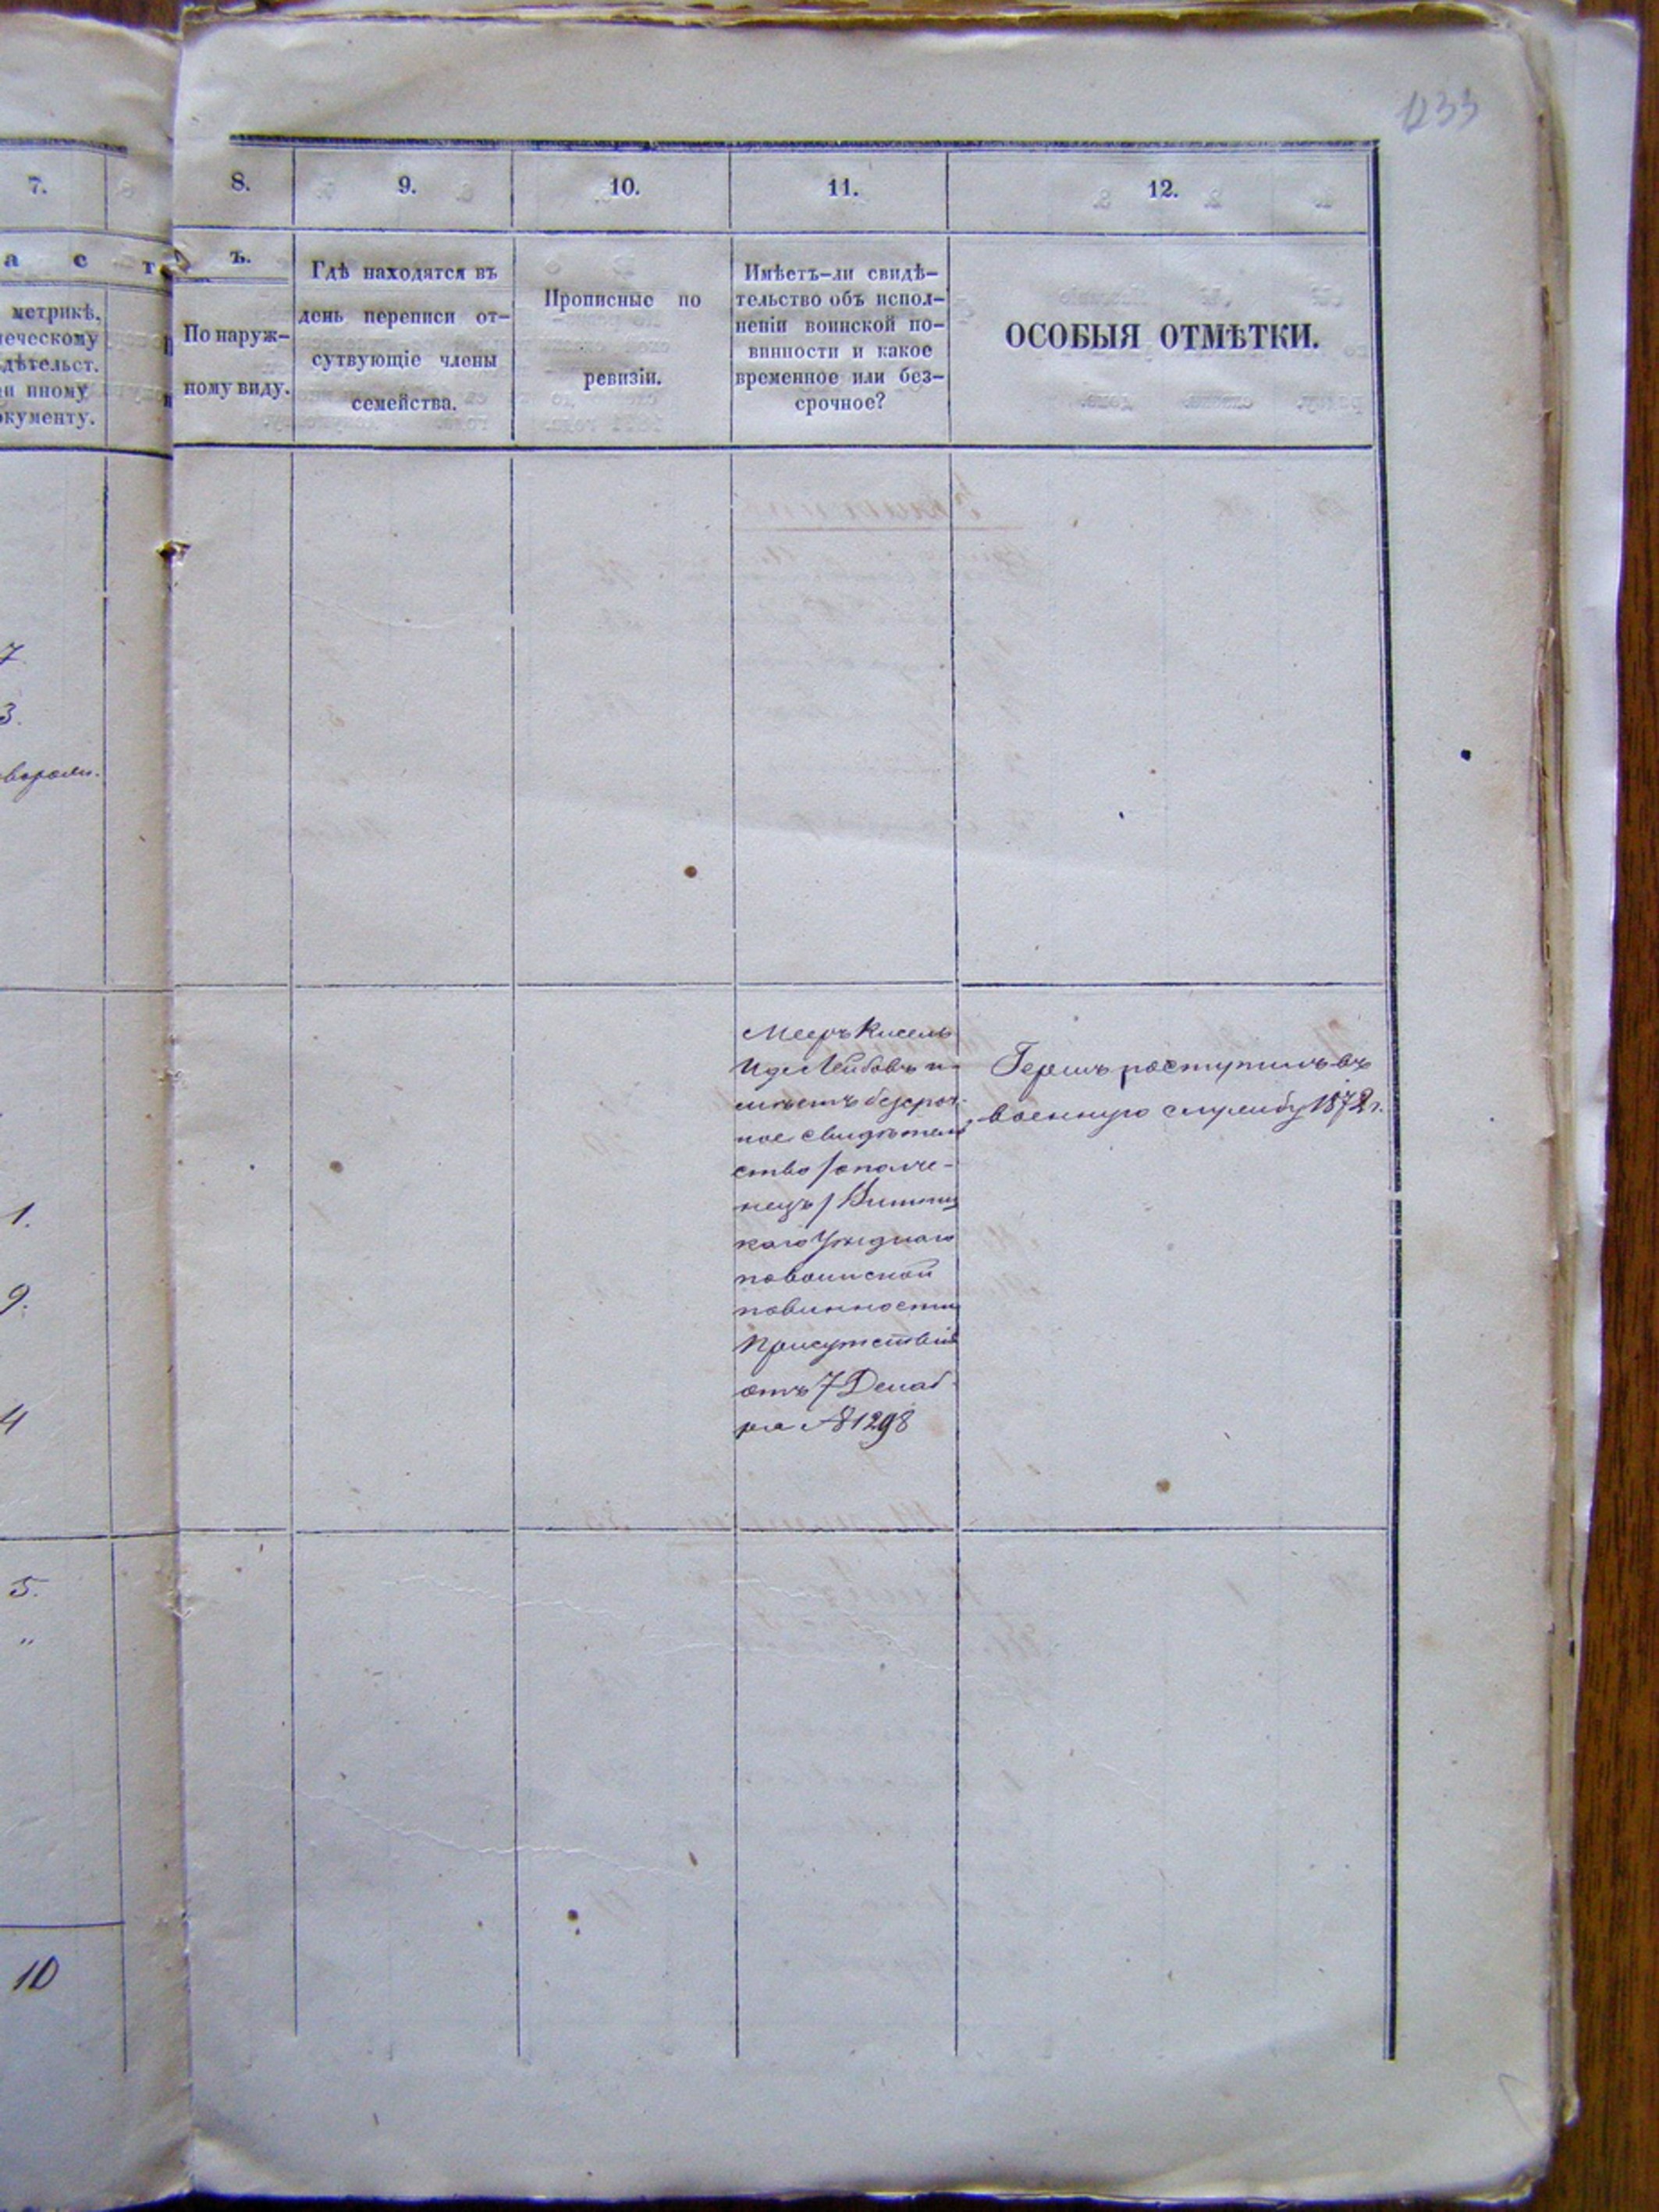 1233
7.
8.
9.
10.
11.
12.
а с т
ъ.
метрикѣ,
ческому
дѣтельст.
и иному
окументу.
По наруж-
ному виду.
Гдѣ находятся въ
день переписи от-
сутвующіе члены
семейства.
Прописные по
ревизіи.
Имѣетъ-ли свидѣ-
тельство объ испол-
неніи воинской по-
винности и какое
временное или без-
срочное?
ОСОБЫЯ ОТМѢТКИ.
7.
3.
1.
9.
4
5.
"
10
Мееръ Кисель
Иде Лейбовъ и-
мѣетъ безсроч-
ное свидѣтель
ство /ополче-
нецъ/ Винниц
каго Уѣзднаго
по воинской
повинности
Присутствія
отъ 7 Декаб-
ря № 1298
Гершъ поступилъ въ
военную службу 1872 г.